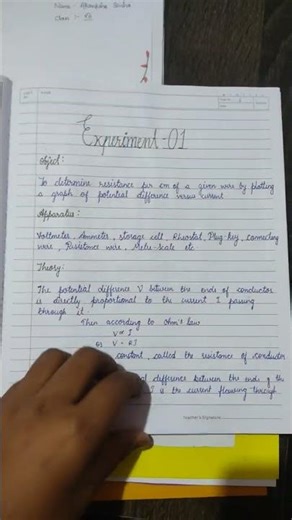 Name :-
Class :-
Experiment -01
Object :
To determine resistance per cm of a given wire by plotting
a graph of potential difference versus current
Apparatus :
Voltmeter, Ammeter, storage cell, Rheostat, Plug key, connecting
wire, Resistance wire, Metre-scale etc.
Theory :
The potential difference V between the ends of conductor
is directly proportional to the current I passing
through it.
Then according to ohm's law
V ∝ I
V = RI
constant, called the resistance of conductor
difference between the ends of the
I is the current flowing through
Teacher's Signature